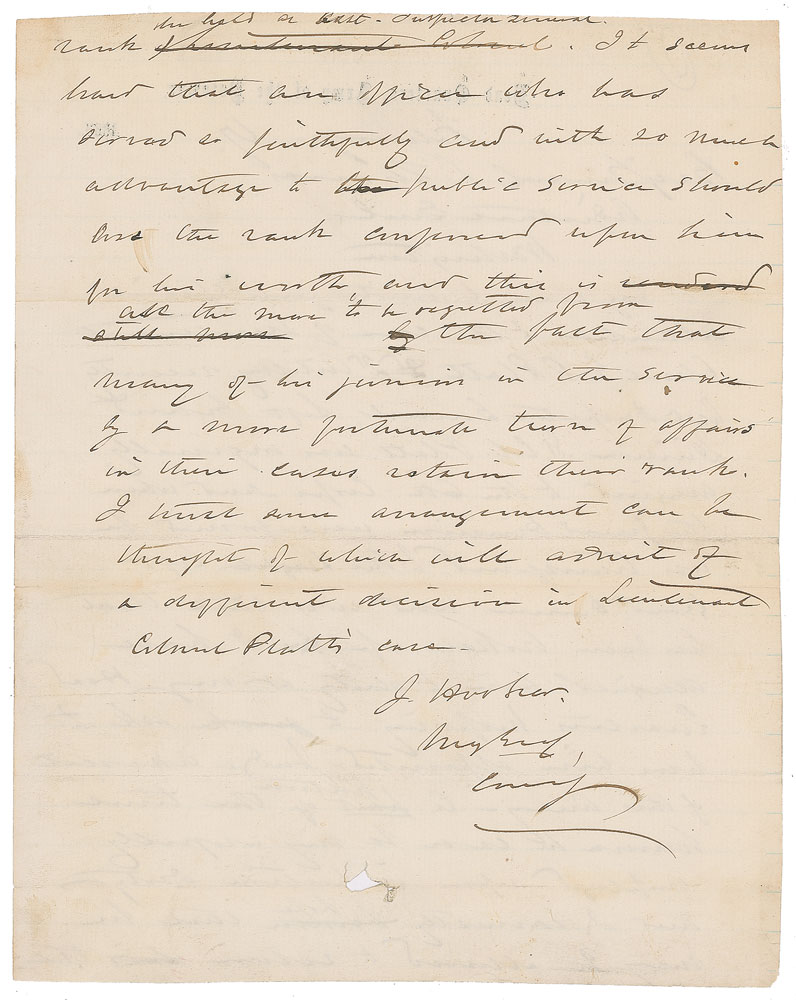 he held as Asst. Inspector General.
rank Lieutenant Colonel. It seems
hard that an officer who has
served so faithfully and with so much
advantage to the public service should
lose the rank conferred upon him
for his worth, and this is rendered
all the more to be regretted from
still more by the fact that
many of his juniors in the service
by a more fortunate turn of affairs
in their cases retain their rank.
I trust some arrangement can be
thought of which will admit of
a different decision in Lieutenant
Colonel Platt's case.
J. Hooker.
Maj Genl,
Comdg